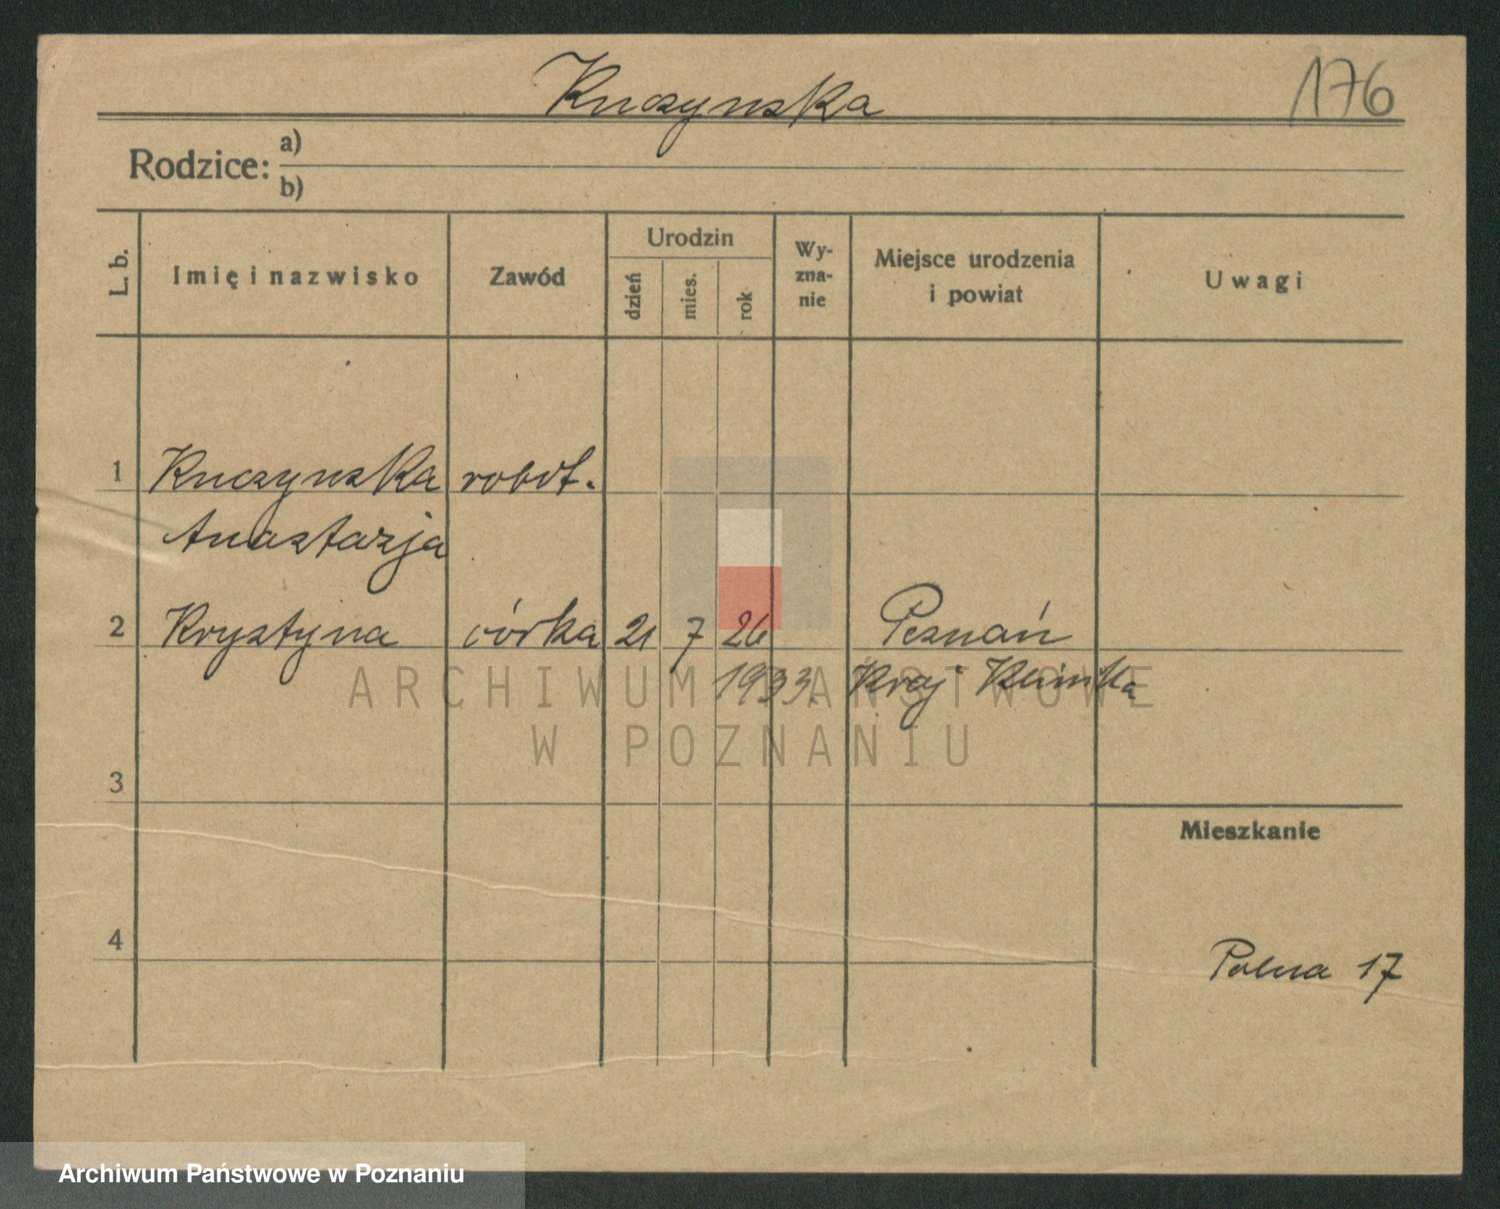 Kuczynska
176
Rodzice: a)
b)
L. b.
Imię i nazwisko
Zawód
Urodzin
dzień
mies.
rok
Wy-
zna-
nie
Miejsce urodzenia
i powiat
Uwagi
1 Kuczynska robot.
Anastazja
2 Krystyna córka 21 7 26 Poznań
1933. Kraj Klinika
ARCHIWUM PAŃSTWOWE
W POZNANIU
3
Mieszkanie
4
Polna 17
Archiwum Państwowe w Poznaniu